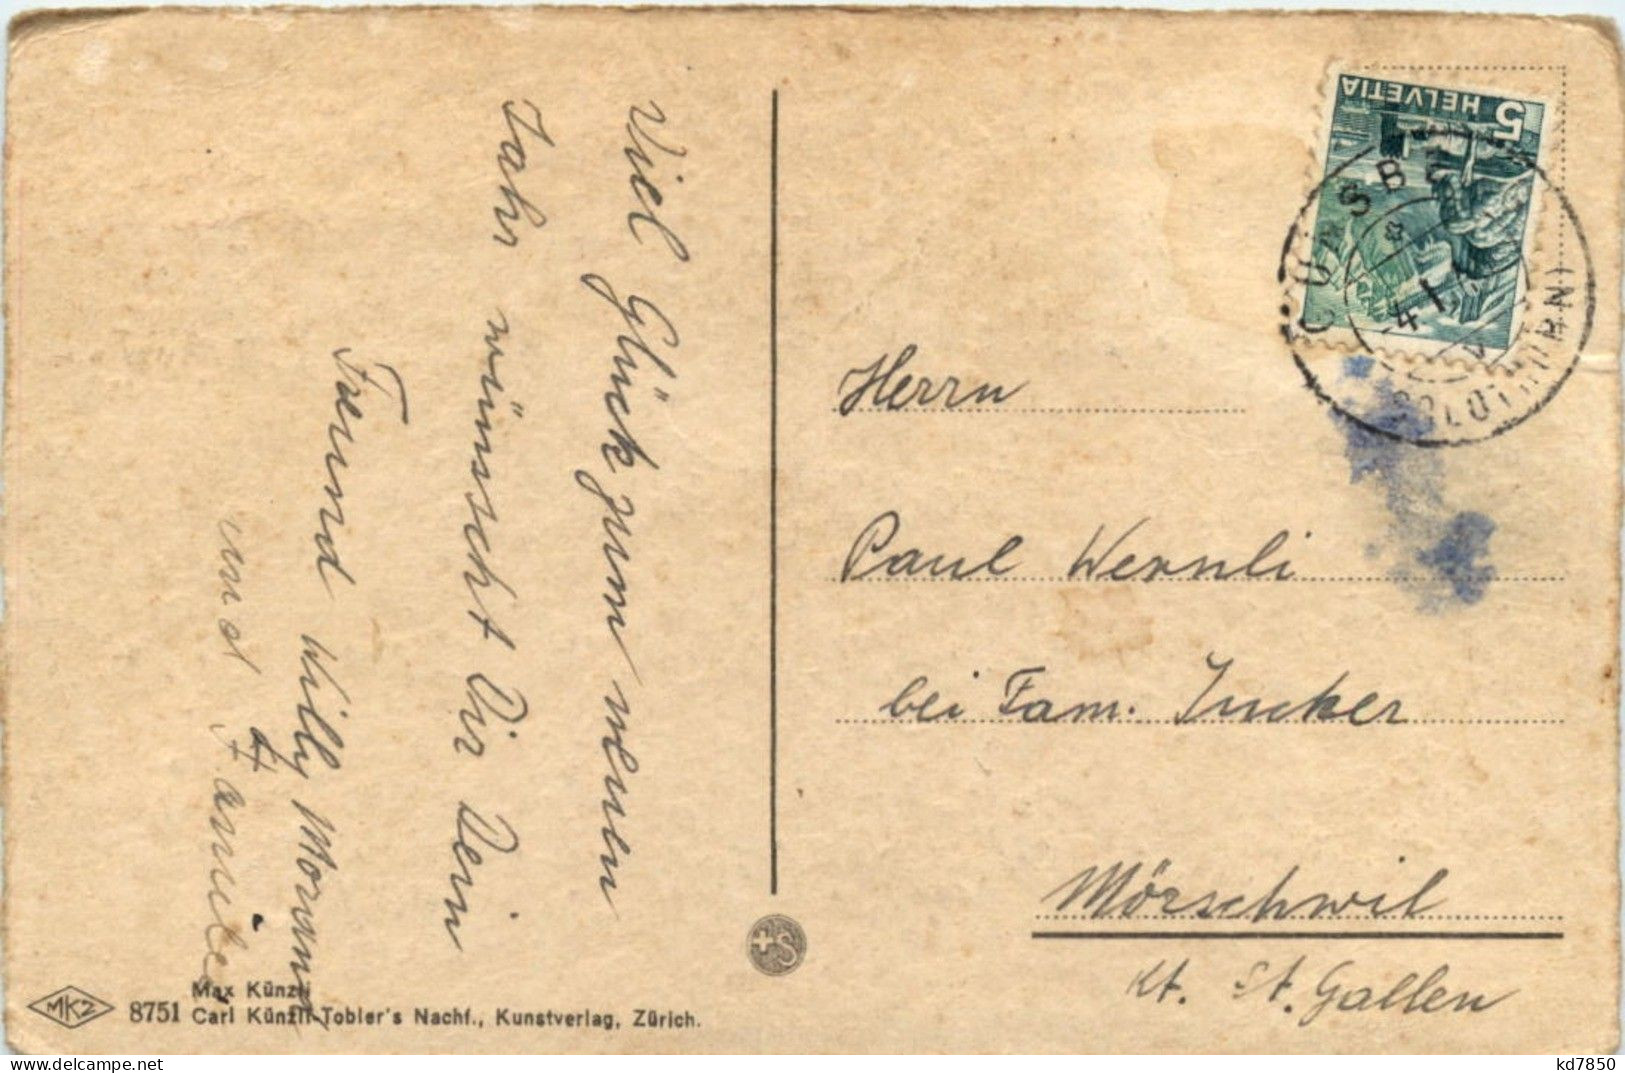 Viel Glück zum neuen
Jahr wünscht Dir Dein
Freund Willy Morand
und Familie
HELVETIA
5
SOLOTHURN
Herrn
Paul Wernli
bei Fam. Jucker
Mörschwil
Kt. St. Gallen
+S
MKZ
8751
Max Künzli
Carl Künzli-Tobler's Nachf., Kunstverlag, Zürich.
kd7850